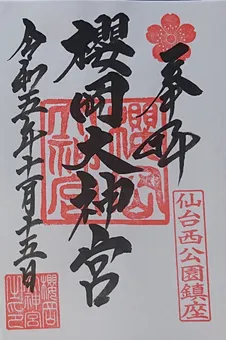 奉拝
櫻岡大神宮
仙台西公園鎮座
令和五年十一月十五日
櫻岡
神宮